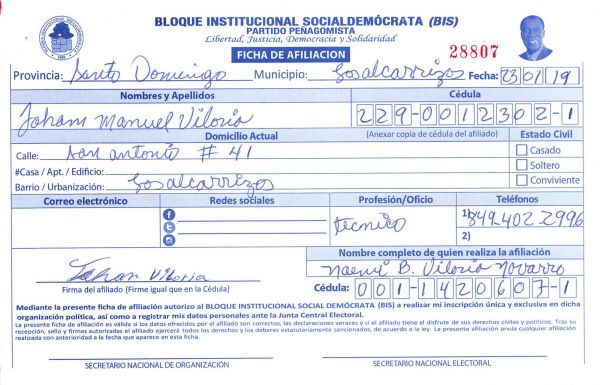 BLOQUE INSTITUCIONAL SOCIALDEMÓCRATA (BIS)
PARTIDO PEÑAGOMISTA
Libertad, Justicia, Democracia y Solidaridad
FICHA DE AFILIACION
28807
Provincia: Santo Domingo Municipio: Los alcarrizos Fecha: 23/01/19
Nombres y Apellidos Cédula
Joham Manuel Viloria 229-0012302-1
Domicilio Actual (Anexar copia de cédula del afiliado) Estado Civil
Calle: san antonio # 41 Casado
#Casa / Apt. / Edificio: Soltero
Barrio / Urbanización: Los alcarrizos Conviviente
Correo electrónico Redes sociales Profesión/Oficio Teléfonos
tecnico 1) 849 402 2996
2)
Nombre completo de quien realiza la afiliación
Johan Viloria Naemi B. Viloria Novarro
Firma del afiliado (Firme igual que en la Cédula) Cédula: 001-1420607-1
Mediante la presente ficha de afiliación autorizo al BLOQUE INSTITUCIONAL SOCIAL DEMÓCRATA (BIS) a realizar mi inscripción única y exclusiva en dicha
organización política, así como a registrar mis datos personales ante la Junta Central Electoral.
La presente ficha de afiliación es válida si los datos ofrecidos por el afiliado son correctos, las declaraciones veraces y si el afiliado tiene el disfrute de sus derechos civiles y políticos. Tras su
recepción, sello y firmas autorizadas el afiliado ejercerá todos los derechos y los deberes estatutariamente sancionados, de acuerdo a la ley. La presente afiliación anula cualquier afiliación
realizada con anterioridad a la fecha que aparece en esta ficha.
SECRETARIO NACIONAL DE ORGANIZACIÓN SECRETARIO NACIONAL ELECTORAL